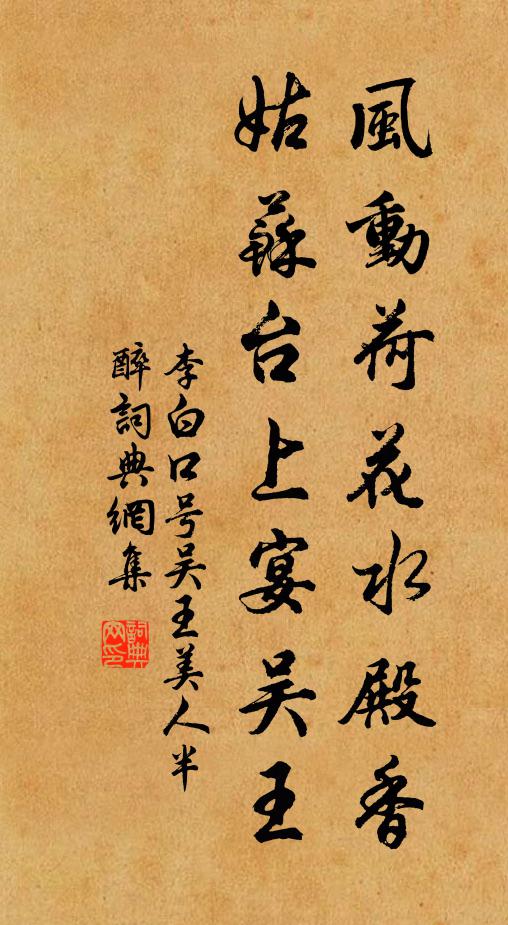 風動荷花水殿香
姑蘇台上宴吳王
李白口号吴王美人半
醉詞典網集
詞典
网印